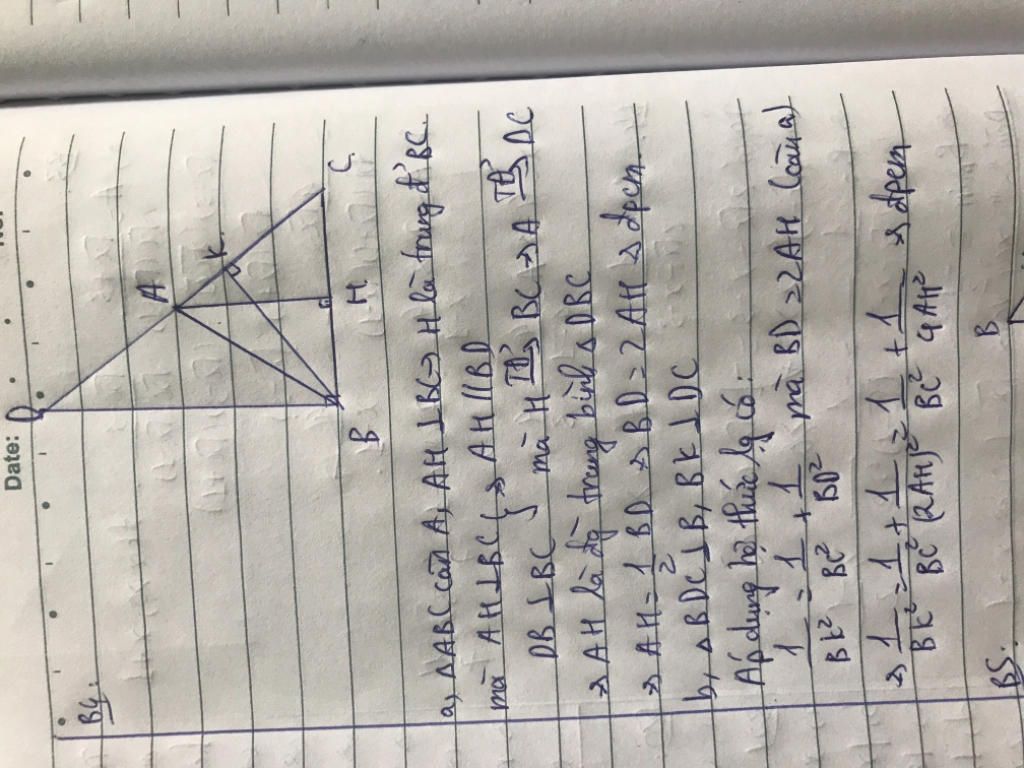 No.
Date:
B4:
D
A
K
B
H
C
a, ΔABC cân A, AH ⊥ BC → H là trung đ' BC.
mà AH ⊥ BC } → AH // BD
DB ⊥ BC } mà H TĐ BC → A TĐ DC
→ AH là đg trung bình Δ DBC
→ AH = 1/2 BD → BD = 2AH → đpcm.
b, Δ BDC ⊥ B, BK ⊥ DC
Áp dụng hệ thức lg có:
1/BK² = 1/BC² + 1/BD² mà BD = 2AH (câu a)
→ 1/BK² = 1/BC² + 1/(2AH)² = 1/BC² + 1/4AH² → đpcm
B5:
B